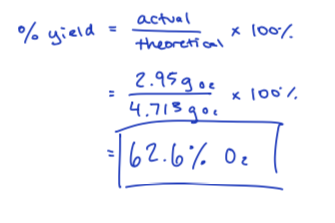 % yield = actual / theoretical × 100%
= 2.95 g O₂ / 4.713 g O₂ × 100%
= 62.6% O₂